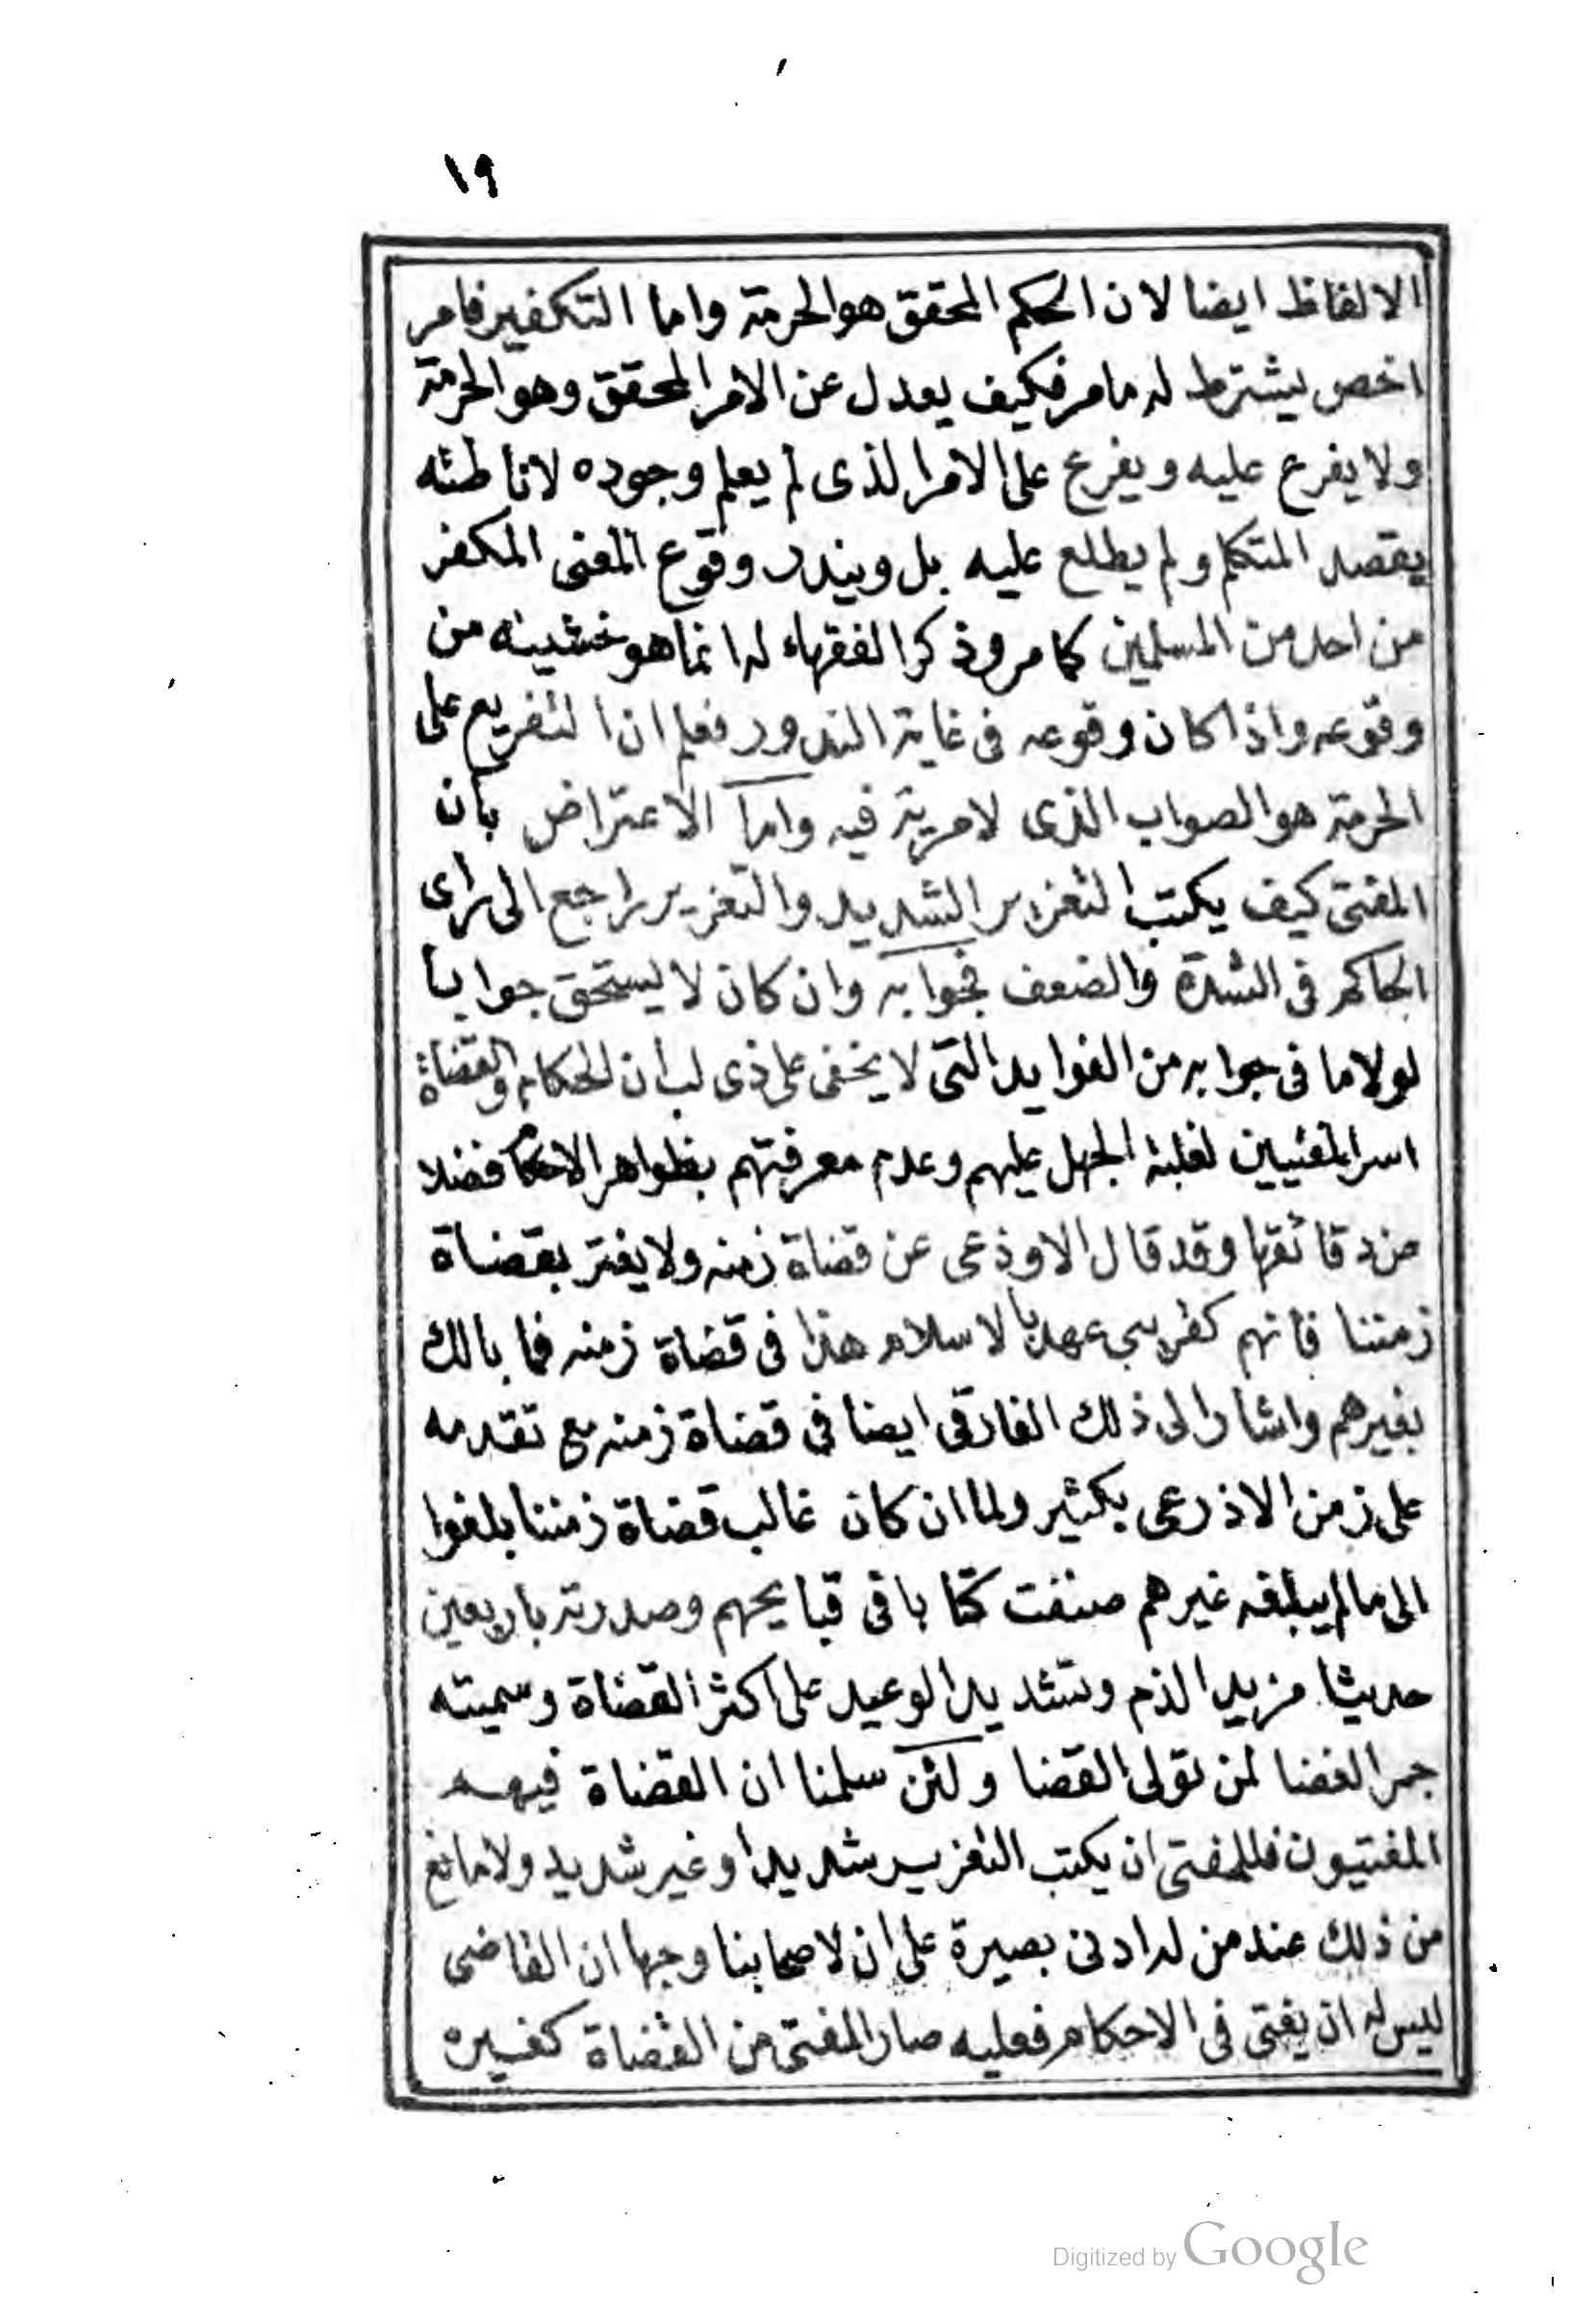 ١٩
الالفاظ ايضا لان الحكم المحقق هو الحرمة واما التكفير فامر
اخص يشترط له ما مر فكيف يعدل عن الامر المحقق وهو الحرمة
ولا يفرع عليه ويفرع على الامر الذى لم يعلم وجوده لاناطته
بقصد المتكلم ولم يطلع عليه بل ويندر وقوع المعنى المكفر
من احد من المسلمين كما مر وذكر الفقهاء له انما هو خشيته من
وقوعه واذا كان وقوعه فى غاية الندور فعلم ان التفريع على
الحرمة هو الصواب الذى لا مرية فيه واما الاعتراض بان
المفتى كيف يكتب التعزير الشديد والتعزير راجع الى راى
الحاكم فى الشدة والضعف فجوابه وان كان لا يستحق جوابا
لولا ما فى جوابه من الفوايد التى لا يخفى على ذى لب ان الحكام والقضاة
اسر المفتيين لغلبة الجهل عليهم وعدم معرفتهم بظواهر الاحكام فضلا
من دقائقها وقد قال الاوذعى عن قضاة زمنه ولا يغتر بقضاة
زمننا فانهم كقريبى عهد بالاسلام هذا فى قضاة زمنه فما بالك
بغيرهم واشار الى ذلك الفارقى ايضا فى قضاة زمنه مع تقدمه
على زمن الاذرعى بكثير ولما ان كان غالب قضاة زمننا بلغوا
الى ما لم يبلغه غيرهم صنفت كتابا فى قبايحهم وصدرته باربعين
حديثا مزيد الذم وتشديد الوعيد على اكثر القضاة وسميته
جمر الغضا لمن تولى القضا ولئن سلمنا ان القضاة فيهم
المفتيون فللمفتى ان يكتب التعزير شديدا وغير شديد ولا مانع
من ذلك عند من له ادنى بصيرة على ان لاصحابنا وجها ان القاضى
ليس له ان يفتى فى الاحكام فعليه صار المفتى من القضاة كغيره
Digitized by Google